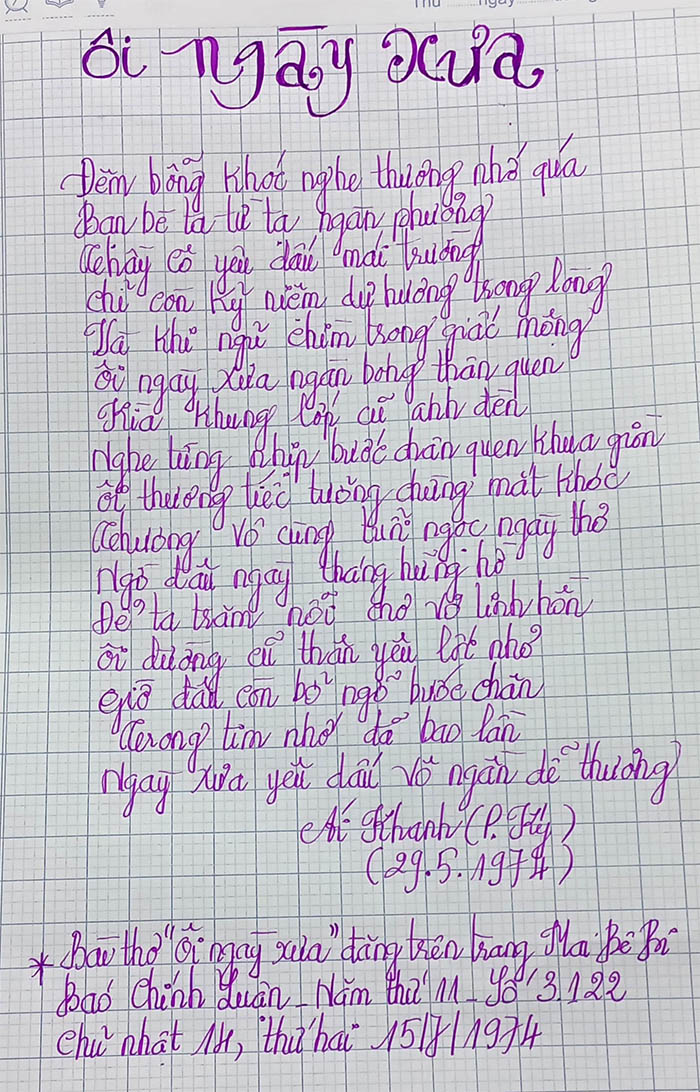 Thứ ngày
Ôi ngày xưa
Đêm bỗng khóc nghe thương nhớ quá
Bạn bè ta từ tạ ngàn phương
Thầy cô yêu dấu mái trường
Chỉ còn kỷ niệm dư hương trong lòng
Và khi ngủ chìm trong giấc mộng
Ôi ngày xưa ngàn bóng thân quen
Kìa khung lớp cũ ánh đèn
Nghe từng nhịp bước chân quen khua giòn
Ôi thương tiếc tưởng chừng mắt khóc
Thương vô cùng tuổi ngọc ngây thơ
Ngờ đâu ngày tháng hững hờ
Để ta trăm nỗi chơ vơ linh hồn
Ôi đường cũ thân yêu lớt nhớ
Giờ đâu còn bỡ ngỡ bước chân
Trong tim nhớ đã bao lần
Ngày xưa yêu dấu vô ngần dễ thương
Ái Khanh (P. Hy)
(29.5.1974)
* Bài thơ "Ôi ngày xưa" đăng trên trang Mai Bê Bi
Báo Chính Luận - Năm thứ 11 - Số 3.122
Chủ nhật 14, thứ hai 15/7/1974